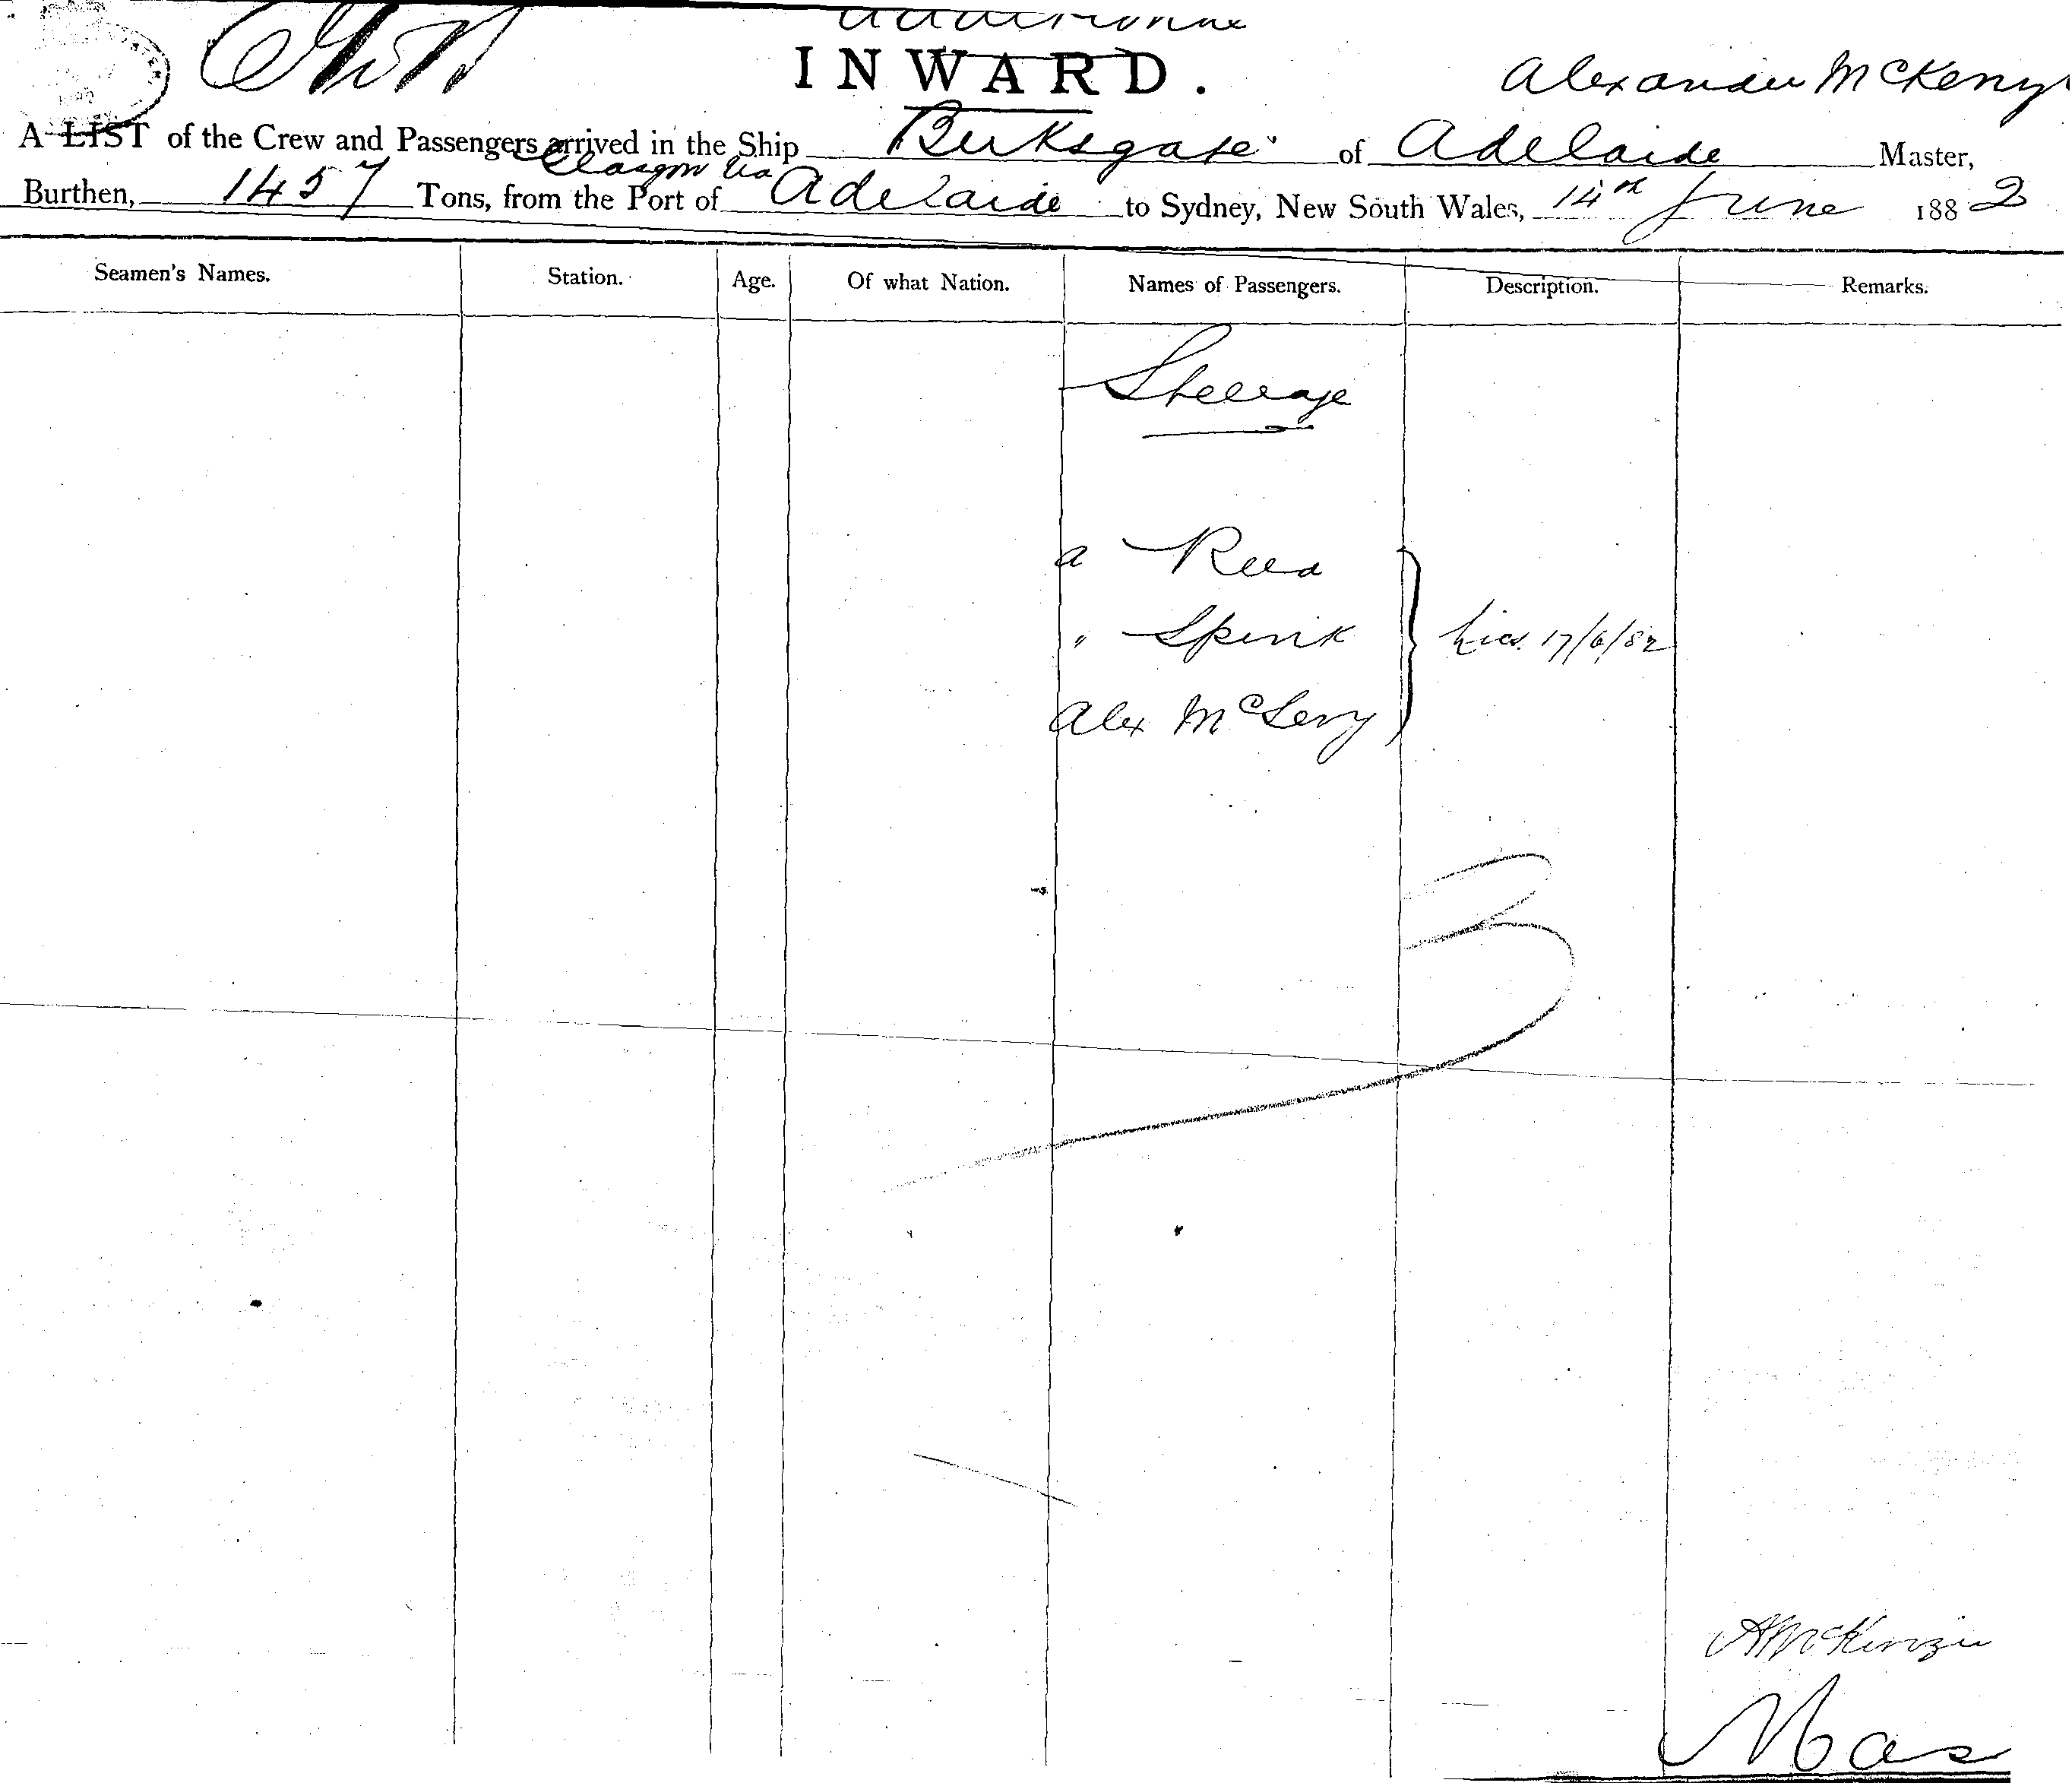 Additional
INWARD.
Alexander McKenz
A LIST of the Crew and Passengers arrived in the Ship Birksgate of Adelaide Master,
Glasgow via
Burthen, 1457 Tons, from the Port of Adelaide to Sydney, New South Wales, 14th June 1882
Seamen's Names. Station. Age. Of what Nation. Names of Passengers. Description. Remarks.
Steerage
A Reed
" Spink
17/6/82
Alex McLevy
AMcKenzie
Mas